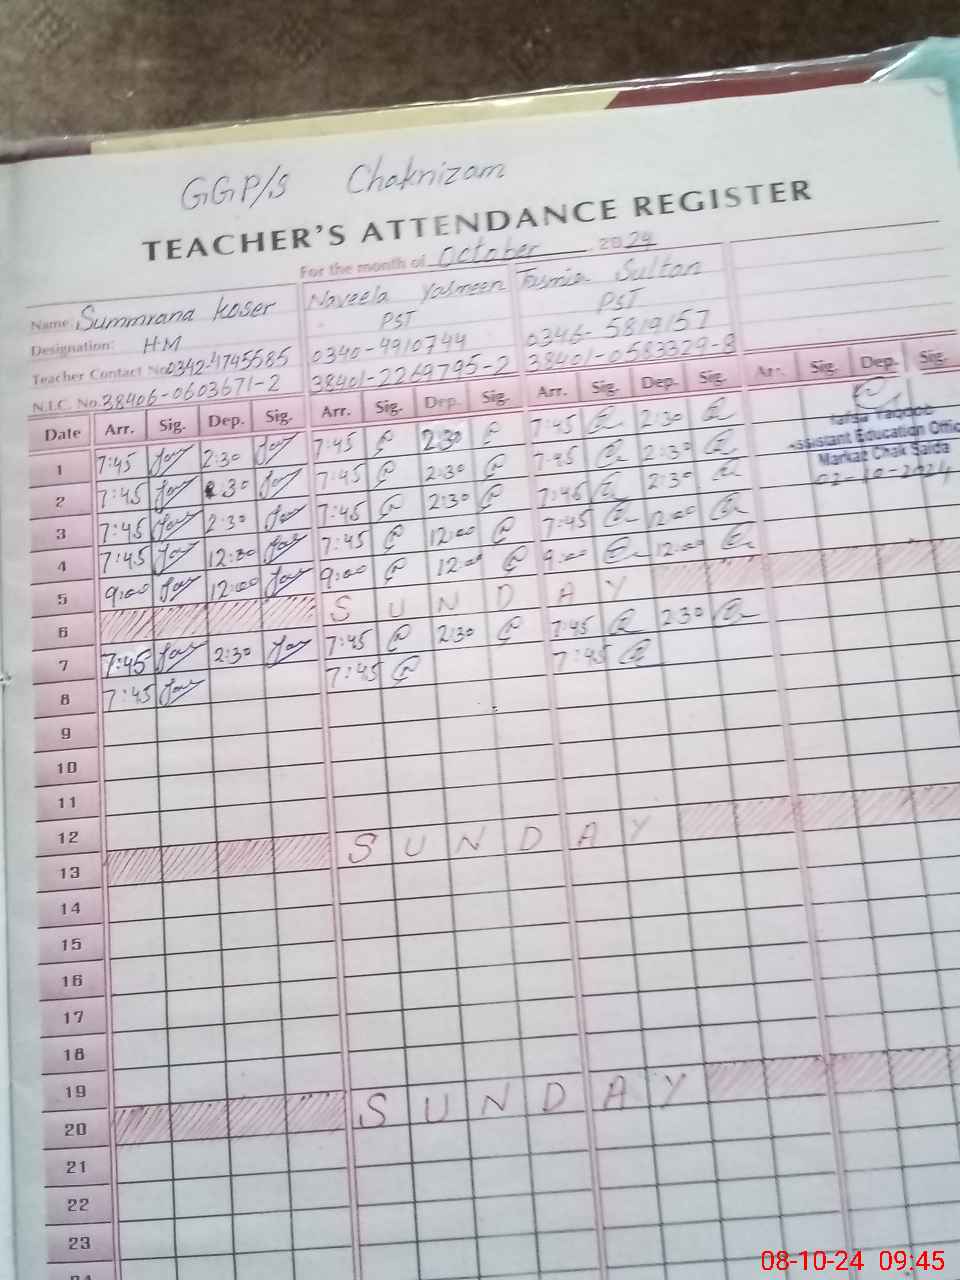 GGP/S Chaknizam
TEACHER'S ATTENDANCE REGISTER
For the month of October 2024
Name: Summrana koser Naveela Yasmeen Tasmia Sultan
Designation: H.M PST PST
Teacher Contact No. 0342-4745585 0340-4910744 0346-5819157
N.I.C. No. 38406-0603671-2 38401-2269795-2 38401-0583329-8
Date Arr. Sig. Dep. Sig. Arr. Sig. Dep. Sig. Arr. Sig. Dep. Sig. Arr. Sig. Dep. Sig.
1 7:45 2:30 7:45 2:30 7:45 2:30
2 7:45 2:30 7:45 2:30 7:45 2:30
3 7:45 2:30 7:45 2:30 7:45 2:30
4 7:45 12:30 7:45 12:00 7:45 12:00
5 9:00 12:00 9:00 12:00 9:00 12:00
6 SUNDAY
7 7:45 2:30 7:45 2:30 7:45 2:30
8 7:45 7:45 7:45
9
10
11
12
13 SUNDAY
14
15
16
17
18
19
20 SUNDAY
21
22
23
24
Yaqoob
Assistant Education Offic
Markaz Chak Saida
02-10-2024
08-10-24 09:45